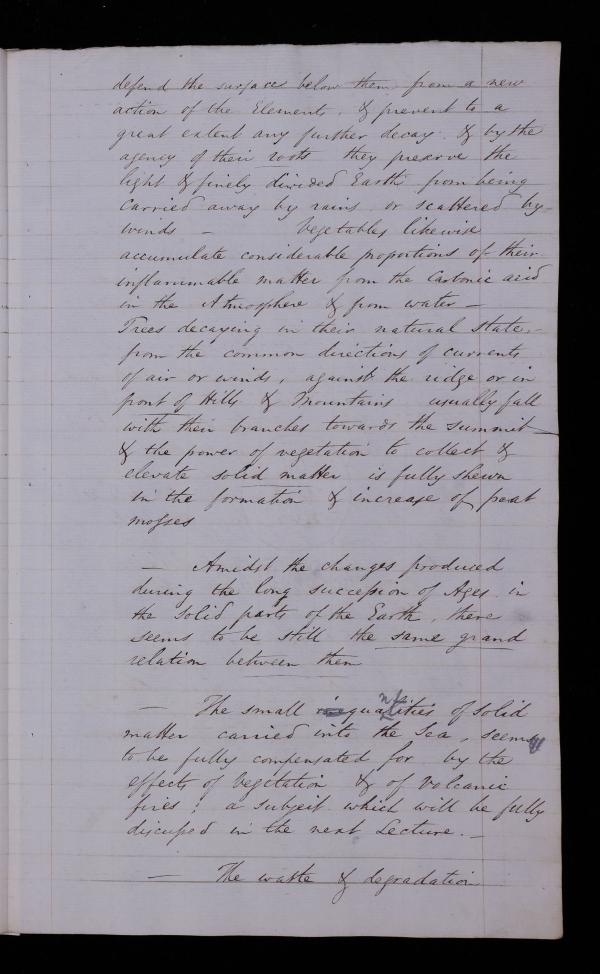 defend the surface below them from a new
action of the Elements, & prevent to a
great extent any further decay. & by the
agency of their roots they preserve the
light & finely divided Earth from being
carried away by rains or scattered by
winds — Vegetables likewise
accumulate considerable proportions of their
inflammable matter from the Carbonic acid
in the Atmosphere & from water —
Trees decaying in their natural State,
from the common directions of currents
of air or winds, against the ridge or in
front of Hills & Mountains usually fall
with their branches towards the summit
& the power of vegetation to collect &
elevate solid matter is fully shewn
in the formation & increase of peat
mosses
— Amidst the changes produced
during the long succession of Ages in
the solid parts of the Earth, there
seems to be still the same grand
relation between them
— The small quantities of solid
matter carried into the Sea, seems
to be fully compensated for by the
effects of Vegetation & of volcanic
fires; a subject which will be fully
discussed in the next Lecture. —
— The waste & degradation